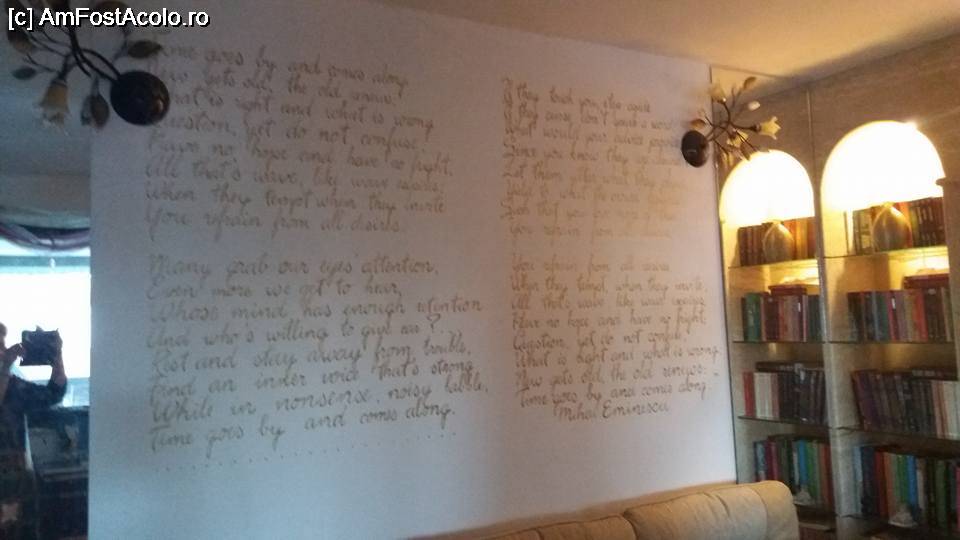 [c] AmFostAcolo.ro
Time goes by and comes along
New gets old, the old renews.
What is right and what is wrong
Question, yet do not confuse.
Have no hope and have no fright,
All that's wave, like wave
When they tempt when they invite
You refrain from all desires.
Many grab our eyes' attention,
Even more we get to hear,
Whose mind has enough retention
And who's willing to give ear?
Rest and stay away from troubles,
Find an inner voice that's strong
While in nonsense, noisy babble,
Time goes by and comes along.
. . . . . . . . . . . . . . . .
If they touch you, step aside
If they curse, don't a word
What would your advice
Since you know they
Let them utter what they
to what the
Such that you love
You refrain from all
You refrain from all
When they tempt, when they invite,
All that's wave like wave
Have no hope and have no fright;
Question, yet do not confuse,
What is right and what is wrong
New gets old, the old renews:
Time goes by and comes along.
Mihai Eminescu